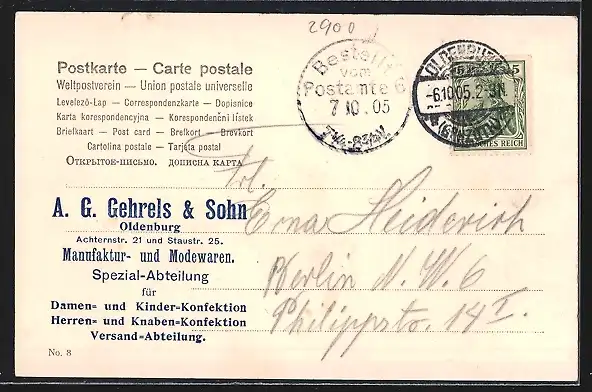 2900
Postkarte — Carte postale
Weltpostverein — Union postale universelle
Levelező-Lap — Correspondenzkarte — Dopisnice
Karta korespondencyjna — Korespondenční lístek
Briefkaart — Post card — Brefkort — Brevkort
Cartolina postale — Tarjeta postal
Открытое-письмо. дописна карта
Bestellt
vom
Postamte 6
7 10. 05
OLDENBURG
6.10.05. 2-3N
(GRHZGTUM)
5
DEUTSCHES REICH
A. G. Gehrels & Sohn
Oldenburg
Achternstr. 21 und Staustr. 25.
Manufaktur- und Modewaren.
Spezial-Abteilung
für
Damen- und Kinder-Konfektion
Herren- und Knaben-Konfektion
Versand-Abteilung.
No. 8
Frl.
Erna Heiderich
Berlin N. W. 6
Philippstr. 14 I.